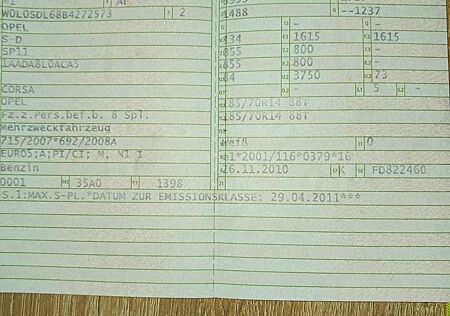 M1 AF
W0L0SDL68B4272573 7 2
OPEL
S-D
SP11
1AADA8L0ACA5
CORSA
OPEL
Fz.z.Pers.bef.b. 8 Spl.
Mehrzweckfahrzeug
715/2007*692/2008A
EURO5;A;PI/CI; M, N1 I
Benzin
0001 35A0 1398
1488 --1237
- -
1615 1615
855 800 -
855 800 -
64 3750 73
- 5 -
185/70R14 88T
185/70R14 88T
weiß 0
e1*2001/116*0379*16
26.11.2010 K FD822460
S.1:MAX.S-PL.*DATUM ZUR EMISSIONSKLASSE: 29.04.2011***